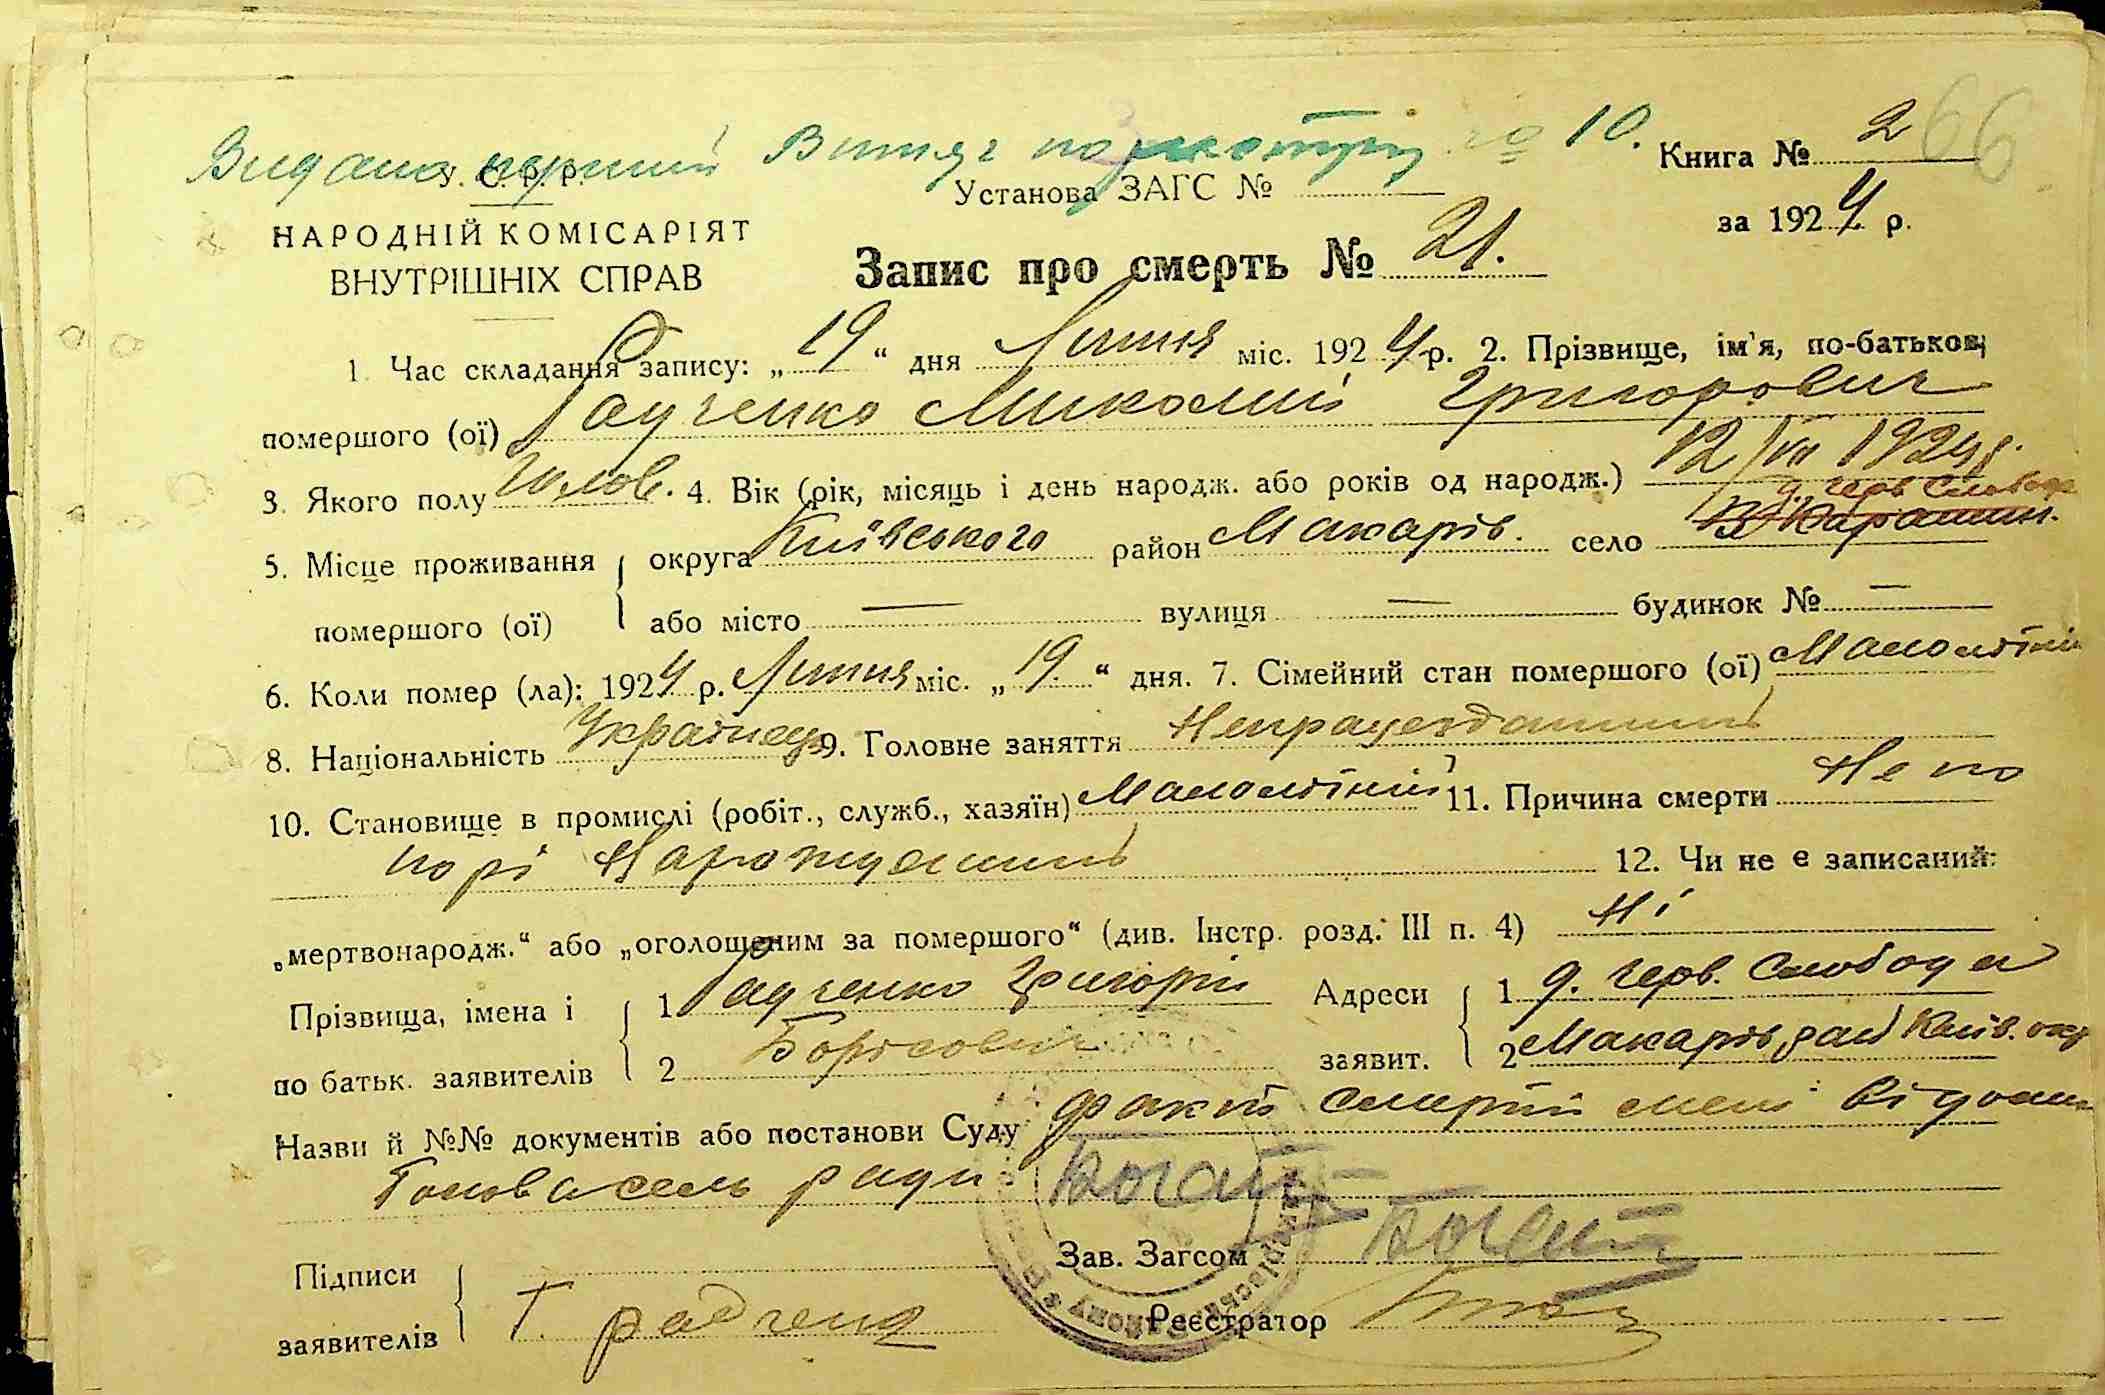 Видано перший Витяг по реєстру № 10.
У. С. Р. Р.
НАРОДНІЙ КОМІСАРІЯТ
ВНУТРІШНІХ СПРАВ
Установа ЗАГС №
Книга № 2 66
за 1924 р.
Запис про смерть № 21.
1. Час складання запису: „19“ дня Липня міс. 1924 р. 2. Прізвище, ім'я, по-батькові
помершого (ої) Радченко Миколай Григорович
3. Якого полу чолов. 4. Вік (рік, місяць і день народж. або років од народж.) 12/VII 1924 р.
д. черв. Слобода
5. Місце проживання округа Київського район Макарів. село Карашин.
помершого (ої) або місто — вулиця — будинок № —
6. Коли помер (ла): 1924 р. Липня міс. „19.“ дня. 7. Сімейний стан помершого (ої) Малолітній
8. Національність Українець 9. Головне заняття Непрацездатний
10. Становище в промислі (робіт., служб., хазяїн) Малолітній 11. Причина смерти Не по
порі Нарожденний 12. Чи не є записаний:
„мертвонародж.“ або „оголощеним за помершого“ (див. Інстр. розд. III п. 4) Ні
Прізвища, імена і 1 Радченко Григорій Адреси 1 д. черв. Слобода
по батьк. заявителів 2 Борісович заявит. 2 Макарів рай Київ. окр
Назви й №№ документів або постанови Суду факт смерти мені відом
Голова сель ради Богат
Зав. Загсом Богат
Підписи
заявителів Г. Радченко Реєстратор